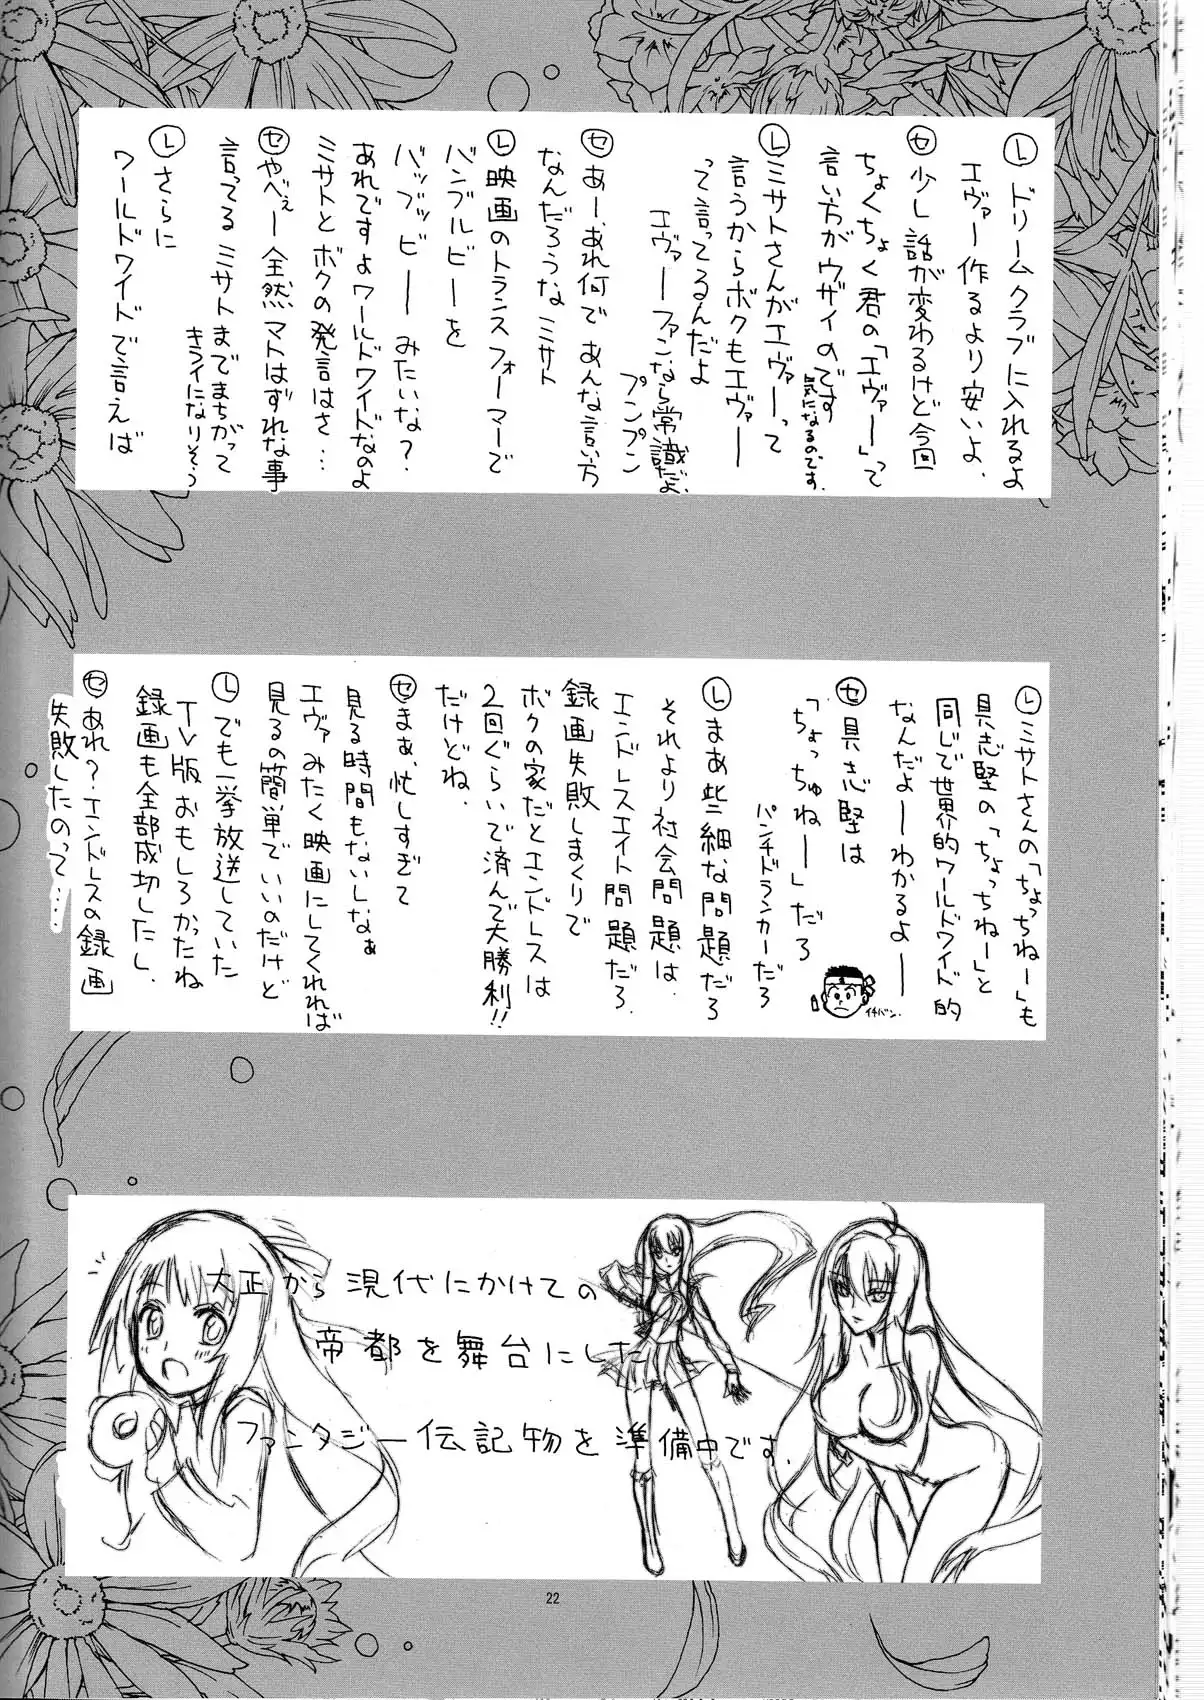 Ⓛドリームクラブに入れるよ
エヴァー作るより安いよ、
㋝少し話が変わるけど今回
ちょくちょく君の「エヴァー」って
言い方がウザイのです
気になるのです、
Ⓛミサトさんがエヴァーって
言うからボクもエヴァー
って言ってるんだよ
エヴァーファンなら常識だよ、
プンプン
㋝あー、あれ何であんな言い方
なんだろうなミサト
Ⓛ映画のトランスフォーマーで
バンブルビーを
バッブッビー みたいな?
あれですよワールドワイドなのよ
ミサトとボクの発言はさ…
㋝やべぇー全然マトはずれな事
言ってるミサトまでまちがって
キライになりそう
Ⓛさらに
ワールドワイドで言えば
Ⓛミサトさんの「ちょっちねー」も
具志堅の「ちょっちねー」と
同じで世界的ワールドワイド的
なんだよーわかるよー
㋝具志堅は
「ちょっちゅねー」だろ
パンチドランカーだろ
イチバン、
Ⓛまあ些細な問題だろ
それより社会問題は、
エンドレスエイト問題だろ、
録画失敗しまくりで
ボクの家だとエンドレスは
2回ぐらいで済んで大勝利!!
だけどね、
㋝まぁ、忙しすぎて
見る時間もないしなぁ
エヴァみたく映画にしてくれれば
見るの簡単でいいのだけど
Ⓛでも一挙放送していた
TV版おもしろかったね
録画も全部成功したし、
㋝あれ?エンドレスの録画
失敗したのって…、
大正から現代にかけての
帝都を舞台にした
ファンタジー伝記物を準備中です、
22